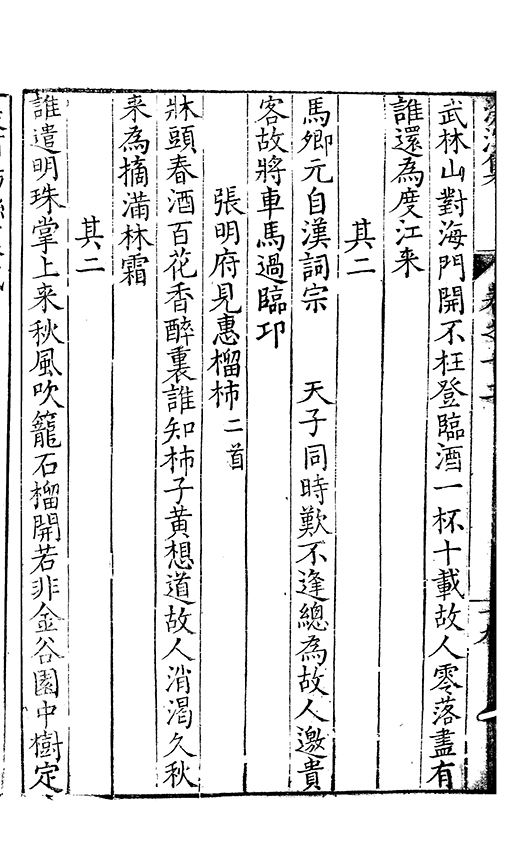 武林山對海門開不枉登臨酒一杯十載故人零落盡有
誰還為度江来
其二
馬卿元自漢詞宗 天子同時歎不逢總為故人邀貴
客故將車馬過臨邛
張明府見惠榴柿二首
牀頭春酒百花香醉裏誰知柿子黃想道故人消渴久秋
来為摘滿林霜
其二
誰遣明珠掌上来秋風吹籠石榴開若非金谷園中樹定